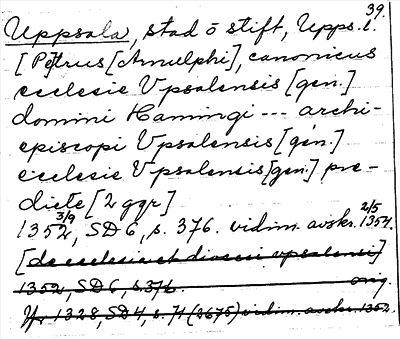 39.
Uppsala, stad o stift, Upps. l.
[Petrus [Arnulphi], canonicus
ecclesie Vpsalensis [gen.]
domini Hemingi --- archi-
episcopi Vpsalensis [gen.]
ecclesie Vpsalensis [gen.] pre-
dicte [2 ggr]
1352 3/9, SD 6, s. 376. vidim. avskr. 1354 2/5.
[de ecclesia et diocesi vpsalensi]
1352, SD 6, s. 376. orig.
1328, SD 4, s. 71 (2675) vidim. avskr. 1352.